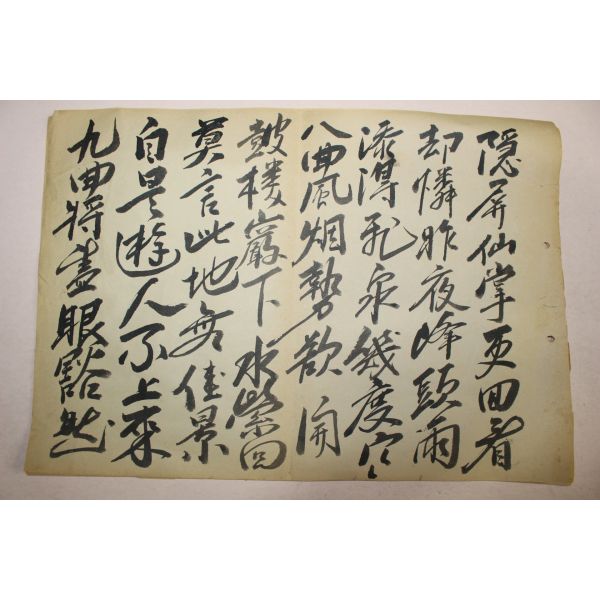 隱屏仙掌更回看
却憐昨夜峰頭雨
添得飛泉幾度寒
八曲風烟勢欲開
鼓楼巖下水縈回
莫言此地無佳景
自是遊人不上來
九曲將盡眼豁然